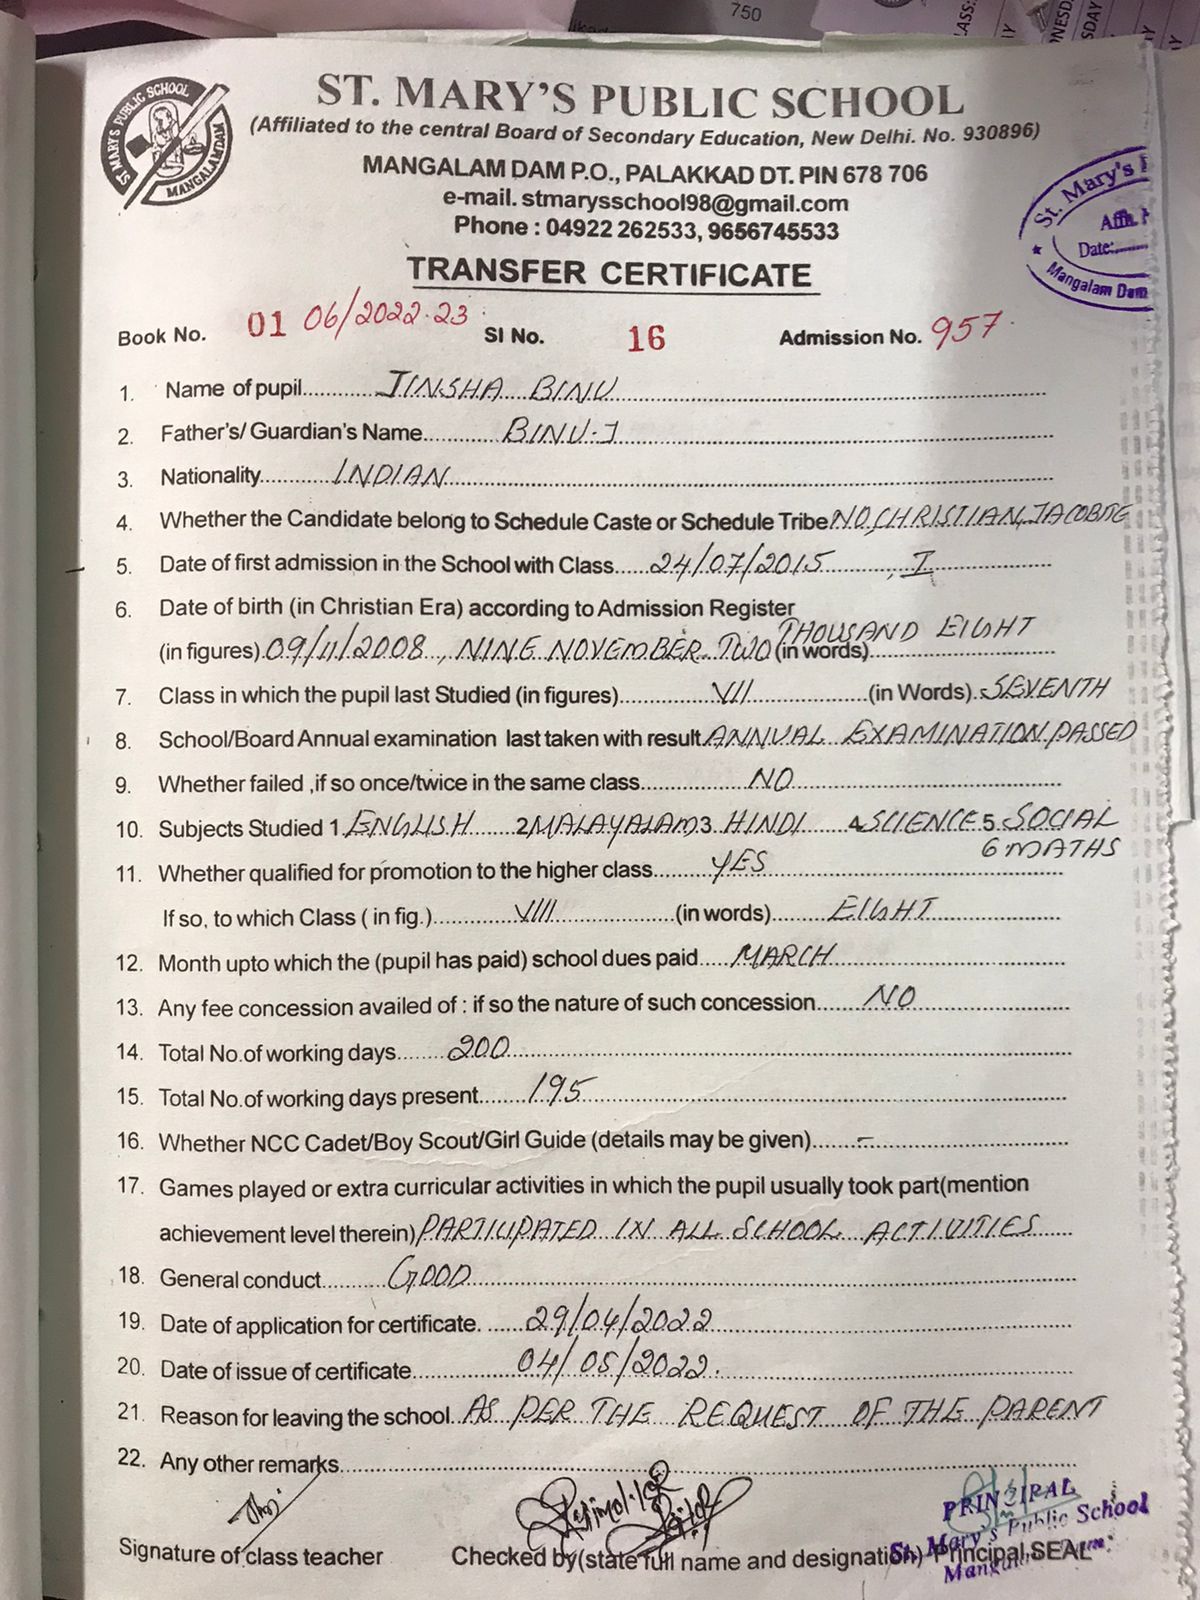 750
ST MARY'S PUBLIC SCHOOL
MANGALAMDAM
ST. MARY'S PUBLIC SCHOOL
(Affiliated to the central Board of Secondary Education, New Delhi. No. 930896)
MANGALAM DAM P.O., PALAKKAD DT. PIN 678 706
e-mail. stmarysschool98@gmail.com
Phone : 04922 262533, 9656745533
St. Mary's
Date:
Mangalam Dam
TRANSFER CERTIFICATE
Book No. 01 06/2022-23 SI No. 16 Admission No. 957
1. Name of pupil JINSHA BINU
2. Father's/ Guardian's Name BINU.J
3. Nationality INDIAN
4. Whether the Candidate belong to Schedule Caste or Schedule Tribe NO, CHRISTIAN, JACOBITE
5. Date of first admission in the School with Class 24/07/2015, I
6. Date of birth (in Christian Era) according to Admission Register
(in figures) 09/11/2008, NINE NOVEMBER TWO THOUSAND EIGHT (in words)
7. Class in which the pupil last Studied (in figures) VII (in Words) SEVENTH
8. School/Board Annual examination last taken with result ANNUAL EXAMINATION PASSED
9. Whether failed ,if so once/twice in the same class NO
10. Subjects Studied 1. ENGLISH 2 MALAYALAM 3. HINDI 4 SCIENCE 5. SOCIAL
6 MATHS
11. Whether qualified for promotion to the higher class YES
If so, to which Class ( in fig.) VIII (in words) EIGHT
12. Month upto which the (pupil has paid) school dues paid MARCH
13. Any fee concession availed of : if so the nature of such concession NO
14. Total No.of working days 200
15. Total No.of working days present 195
16. Whether NCC Cadet/Boy Scout/Girl Guide (details may be given) -
17. Games played or extra curricular activities in which the pupil usually took part(mention
achievement level therein) PARTICIPATED IN ALL SCHOOL ACTIVITIES
18. General conduct GOOD
19. Date of application for certificate. 29/04/2022
20. Date of issue of certificate 04/05/2022.
21. Reason for leaving the school AS PER THE REQUEST OF THE PARENT
22. Any other remarks
PRINCIPAL
St. Mary's Public School
Signature of class teacher Checked by(state full name and designation) Principal SEAL